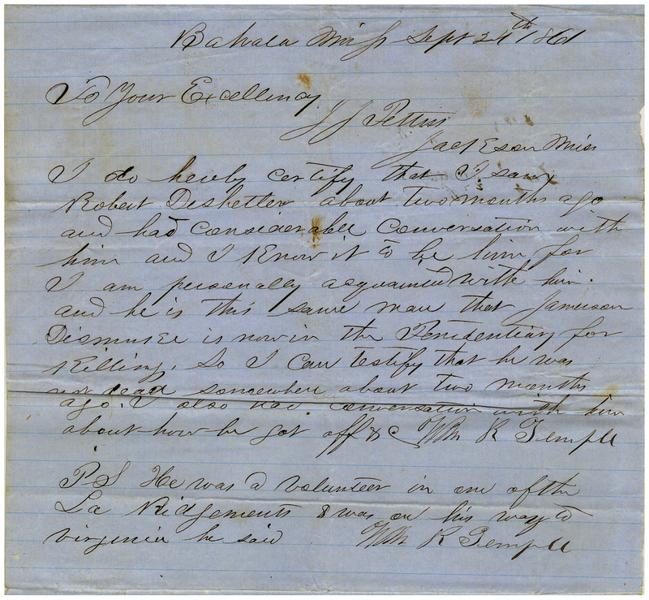 Bahala Miss Sept 24th 1861
To Your Excellency
J J Pettus
Jackson Miss
I do hereby certify that I saw
Robert Deshetler about two months ago
and had considerable conversation with
him and I know it to be him for
I am personally acquainted with him.
and he is this same man that Jameson
Dismuke is now in the Penidentiary for
killing. So I can testify that he was
not dead somewhere about two months
ago. I also had conversation with him
about how he got off &c Wm R Temple
P S He was a volunteer in one of the
La Ridgements & was on his way to
virginia he said Wm R Temple